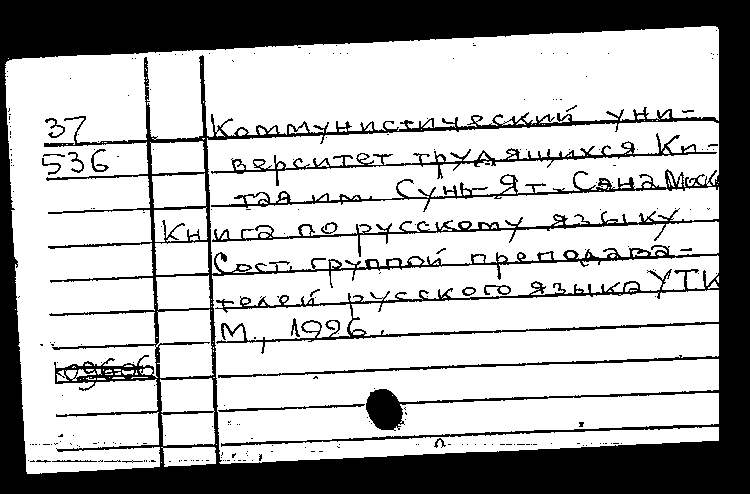 37
536
Коммунистический уни-
верситет трудящихся Ки-
тая им. Сунь-Ят-Сена Моск
Книга по русскому языку
Сост. группой преподава-
телей русского языка УТК
М., 1926.